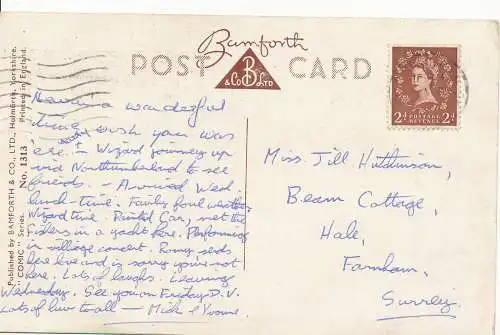 Bamforth
POST CARD
& Co B LTD
2d POSTAGE REVENUE 2d
Published by BAMFORTH & CO., LTD., Holmfirth, Yorkshire.
"COMIC" Series. No. 1313 Printed in England.
Having a wonderful
time wish you was
'ere. Wizard journey up
via Northumberland to see
friends. — Arrived Wed.
lunch-time. Fairly foul weather.
Wizard time. Car, met the
in a yacht here. Performing
in village concert. Romy sends
here love and is sorry you're not
here. Lots of laughs. Leaving
Wednesday. See you on Friday D.V.
Lots of luv to all — Mick & Yvonne.
Miss Jill Hutchinson,
Beam Cottage,
Hale,
Farnham,
Surrey.